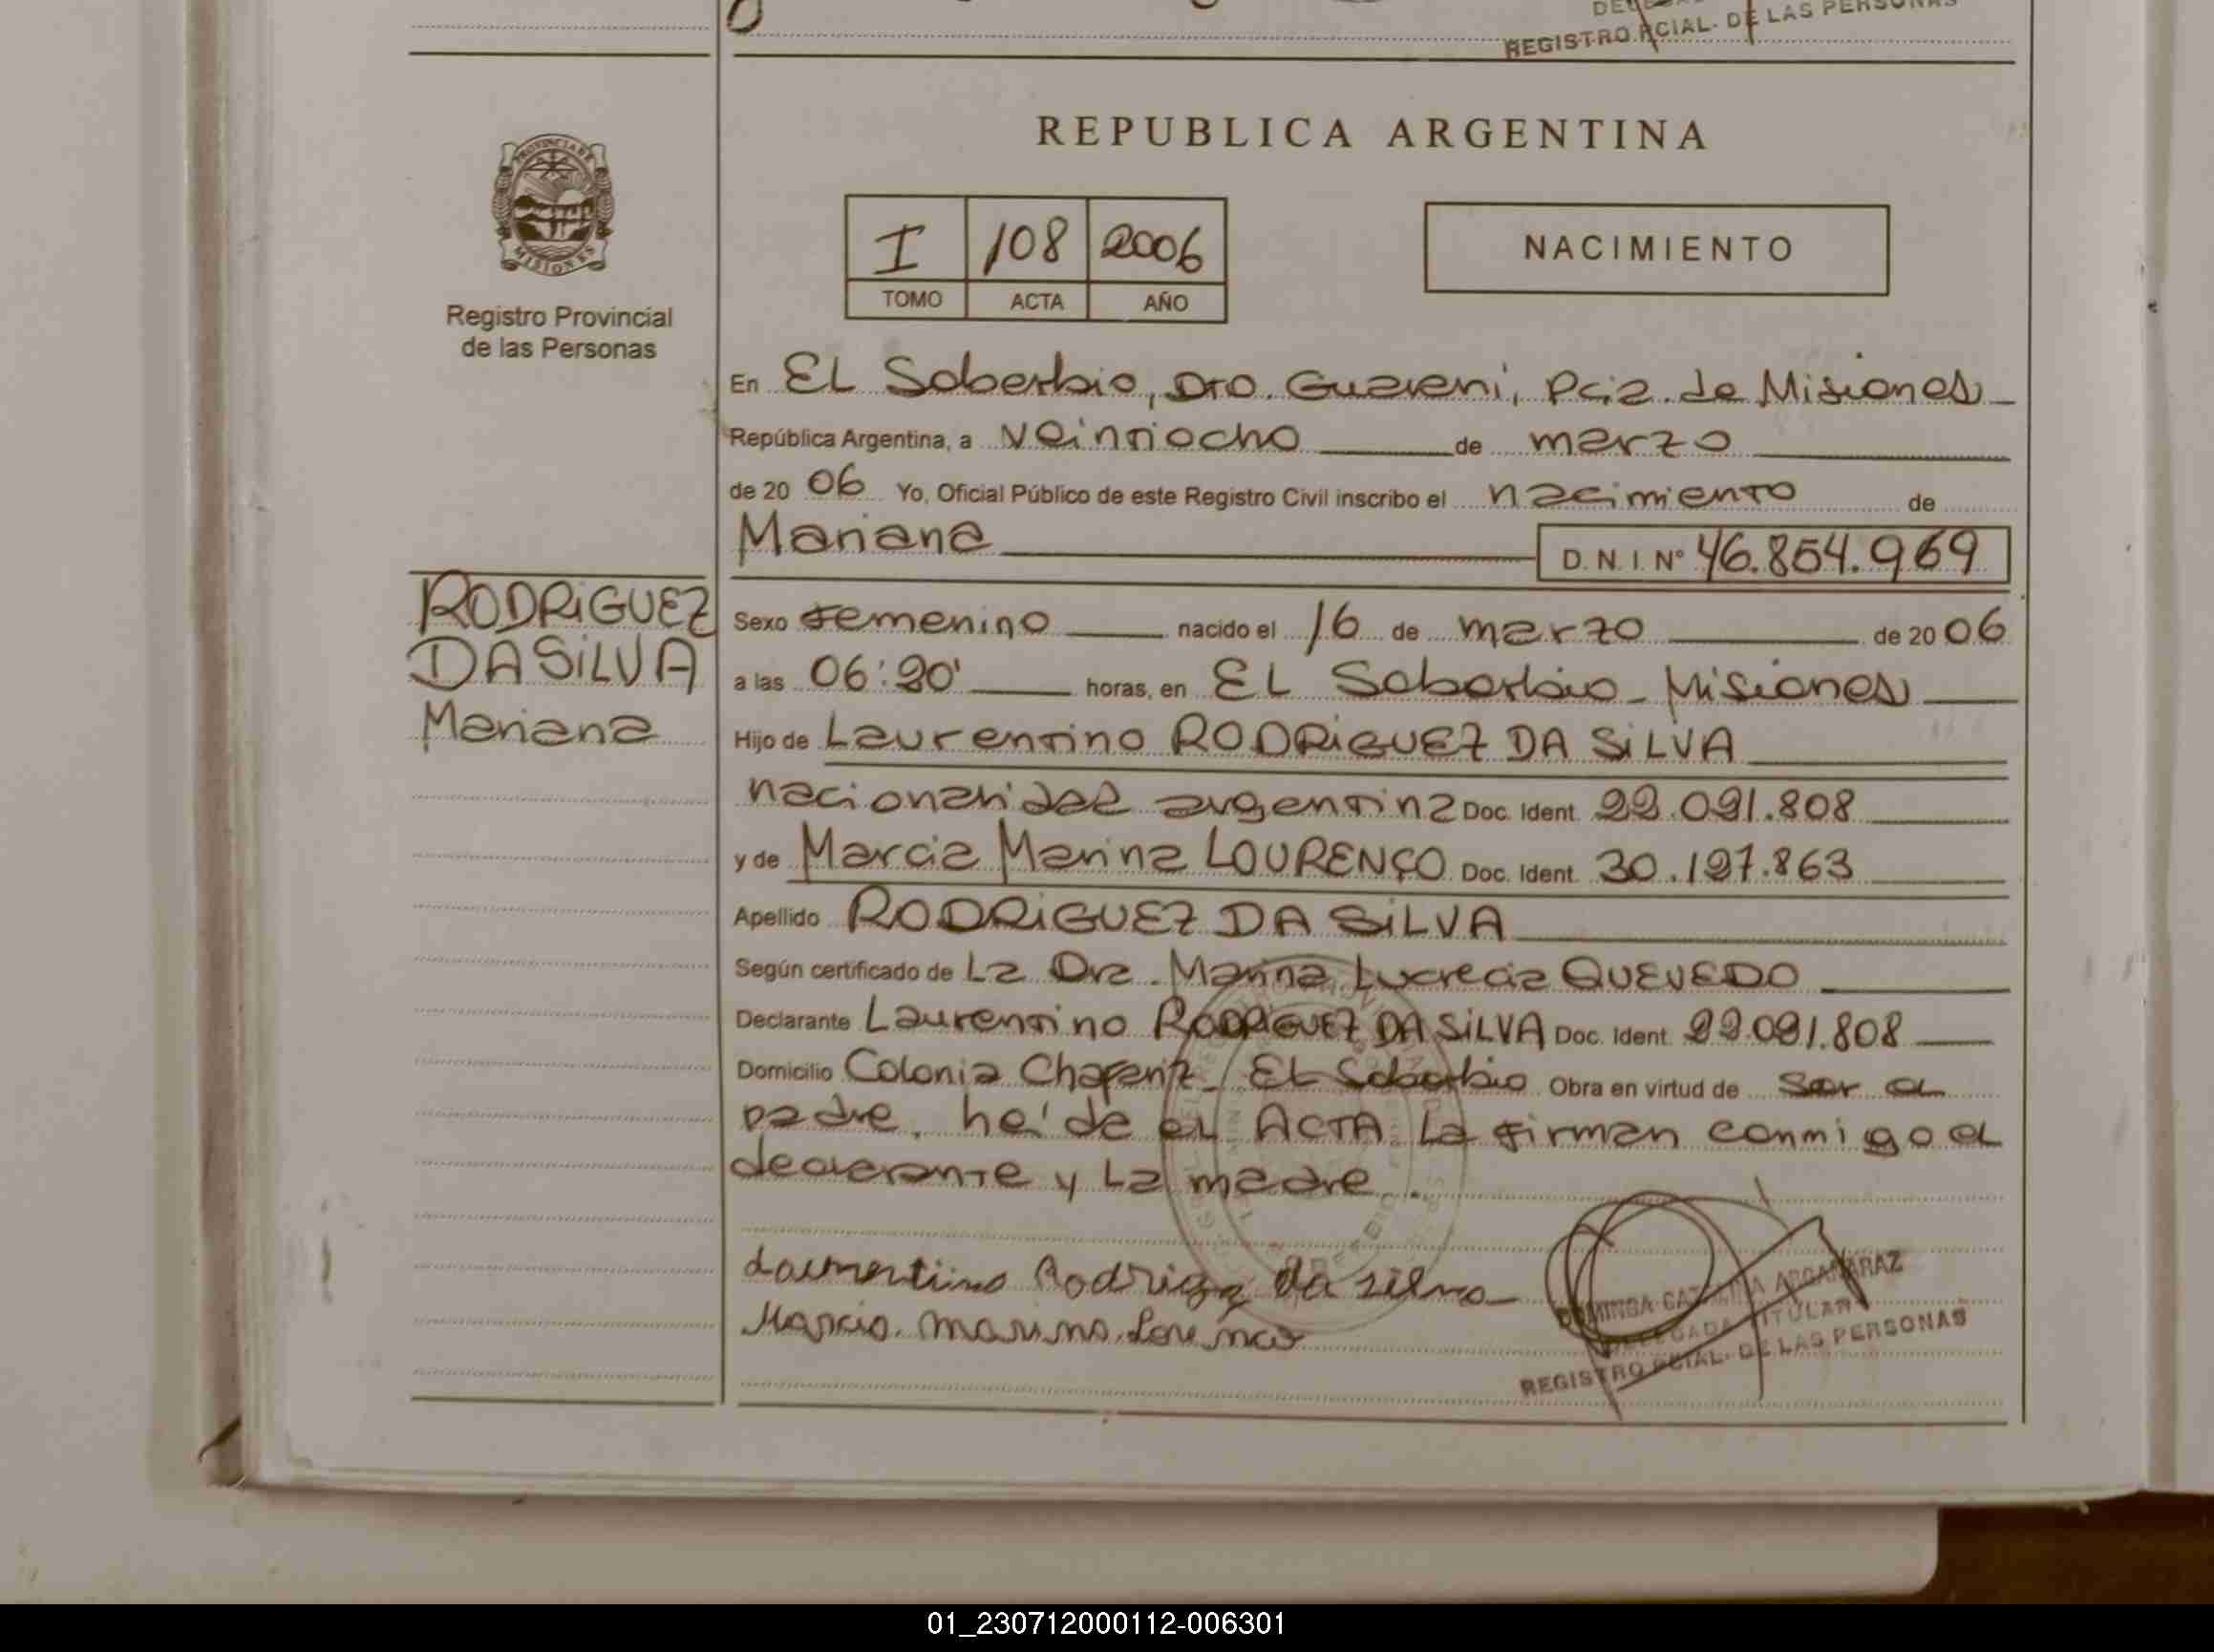 REGISTRO PCIAL. DE LAS PERSONAS
REPUBLICA ARGENTINA
PROVINCIA DE
MISIONES
Registro Provincial
de las Personas
I 108 2006
TOMO ACTA AÑO
NACIMIENTO
En EL Soberbio, Dto. Guarani, Pcia. de Misiones
República Argentina, a veintiocho de marzo
de 20 06 Yo, Oficial Público de este Registro Civil inscribo el nacimiento de
Mariana D. N. I. Nº 46.854.969
RODRIGUEZ
DA SILVA
Mariana
Sexo Femenino nacido el 16 de marzo de 20 06
a las 06:20' horas, en EL Soberbio - Misiones
Hijo de Laurentino RODRIGUEZ DA SILVA
nacionalidad argentina Doc. Ident. 22.091.808
y de Marcia Marina LOURENÇO Doc. Ident. 30.197.863
Apellido RODRIGUEZ DA SILVA
Según certificado de La Dra. Marina Lucrecia QUEVEDO
Declarante Laurentino RODRIGUEZ DA SILVA Doc. Ident. 22.091.808
Domicilio Colonia Chafariz - EL Soberbio Obra en virtud de ser el
padre. heída el ACTA La firman conmigo el
declarante y La madre.
Laurentino Rodriguez da silva
Marcia. marina. Lorenco
DOMINGA CATALINA ARGAÑARAZ
DELEGADA TITULAR
REGISTRO PCIAL. DE LAS PERSONAS
01_230712000112-006301